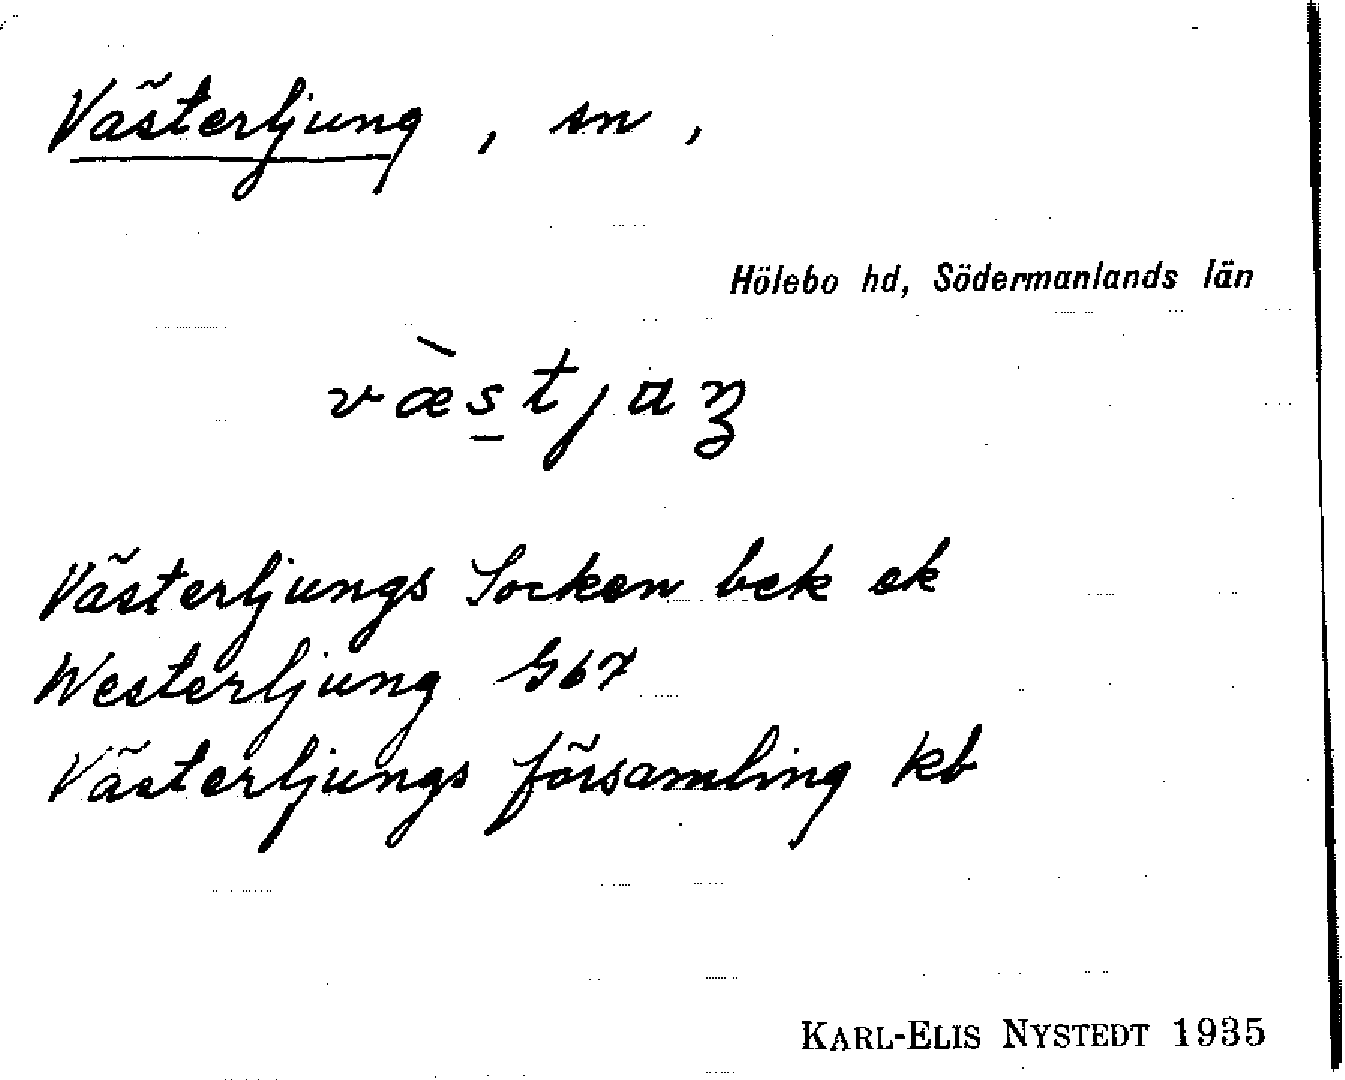 Västerljung, sn,
Hölebo hd, Södermanlands län
væ̀s̱tjaŋ
Västerljungs Socken bek ek
Westerljung Gb7
Västerljungs församling kb
KARL-ELIS NYSTEDT 1935